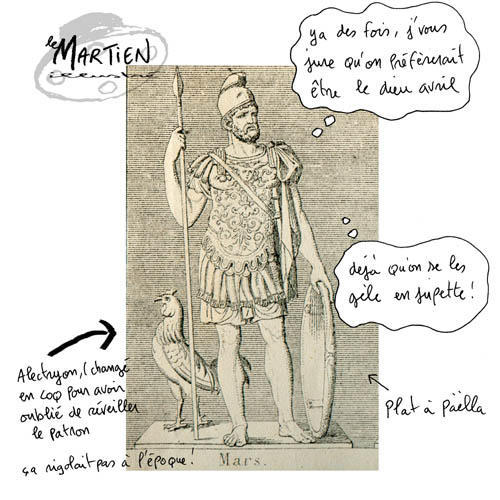 le MARTIEN
illustré
ya des fois, j'vous
jure qu'on préfèrerait
être le dieu avril
déjà qu'on se les
gèle en jupette !
Alectryon, (changé
en coq pour avoir
oublié de réveiller
le patron
ça rigolait pas à l'époque !
Plat à paëlla
Mars.